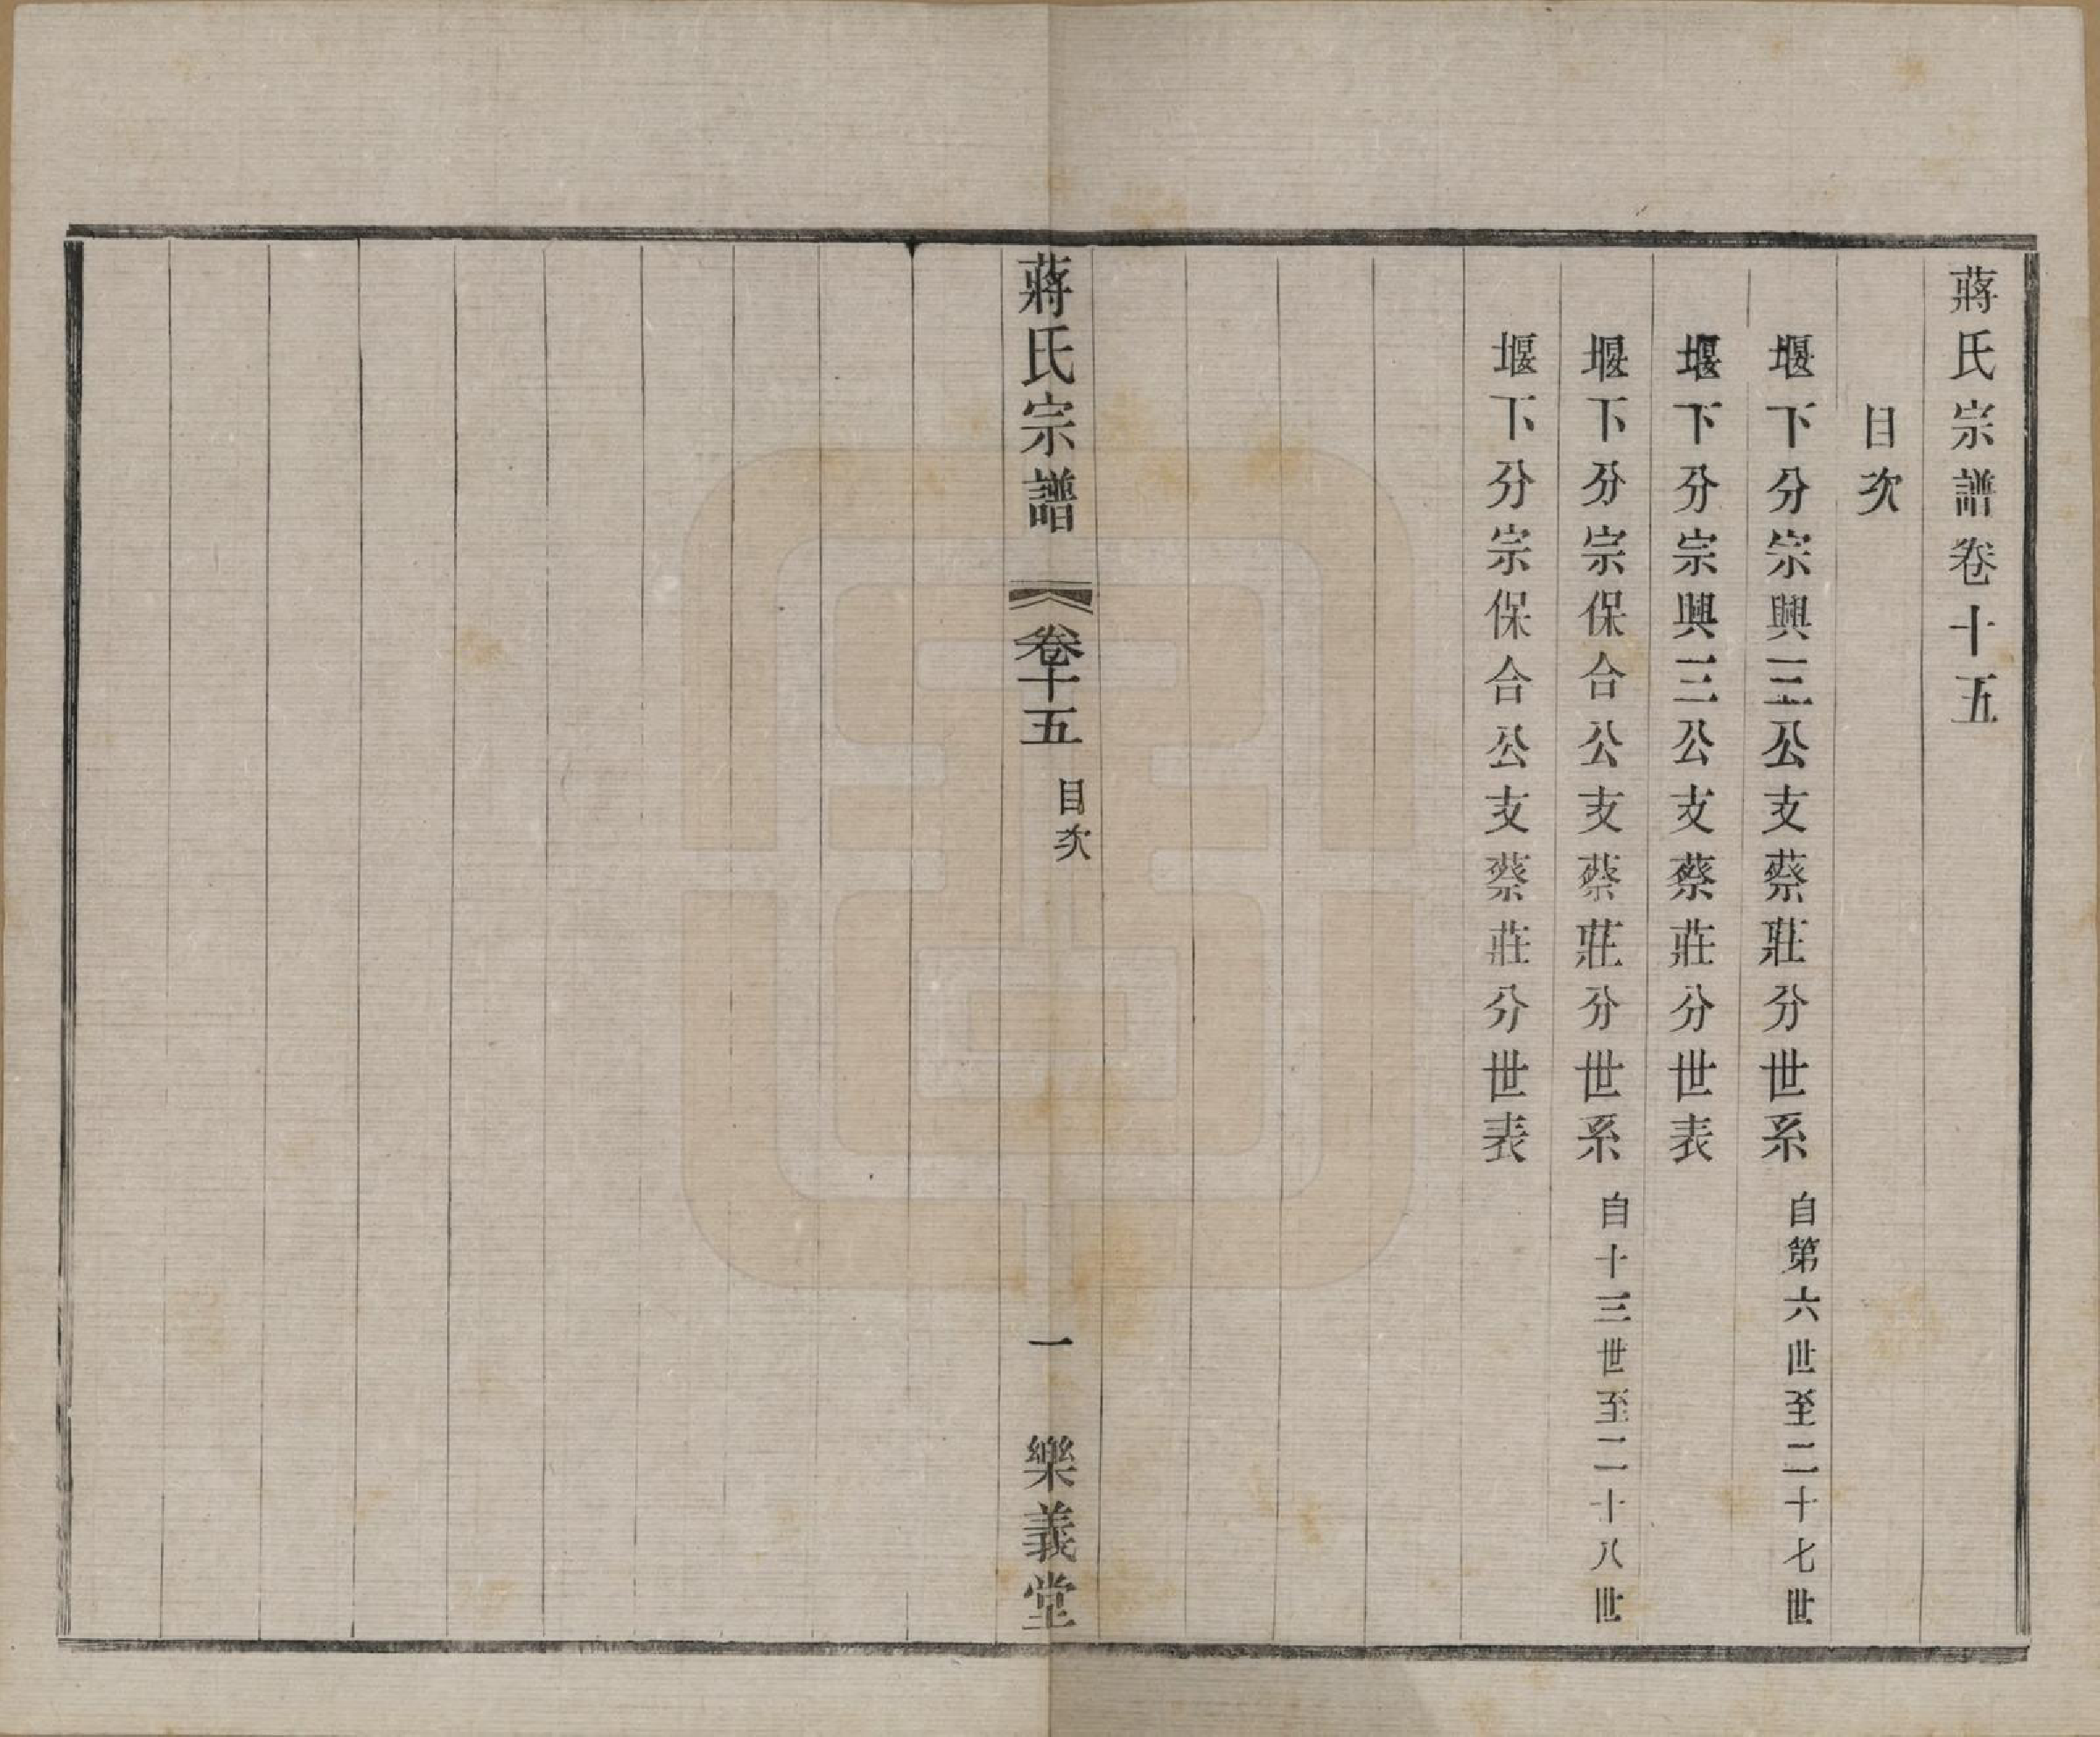 蔣氏宗譜卷十五
目次
堰下分宗興三公支蔡莊分世系 自第六世至二十七世
堰下分宗興三公支蔡莊分世表
堰下分宗保合公支蔡莊分世系 自十三世至二十八世
堰下分宗保合公支蔡莊分世表
蔣氏宗譜 卷十五 目次 一 樂義堂